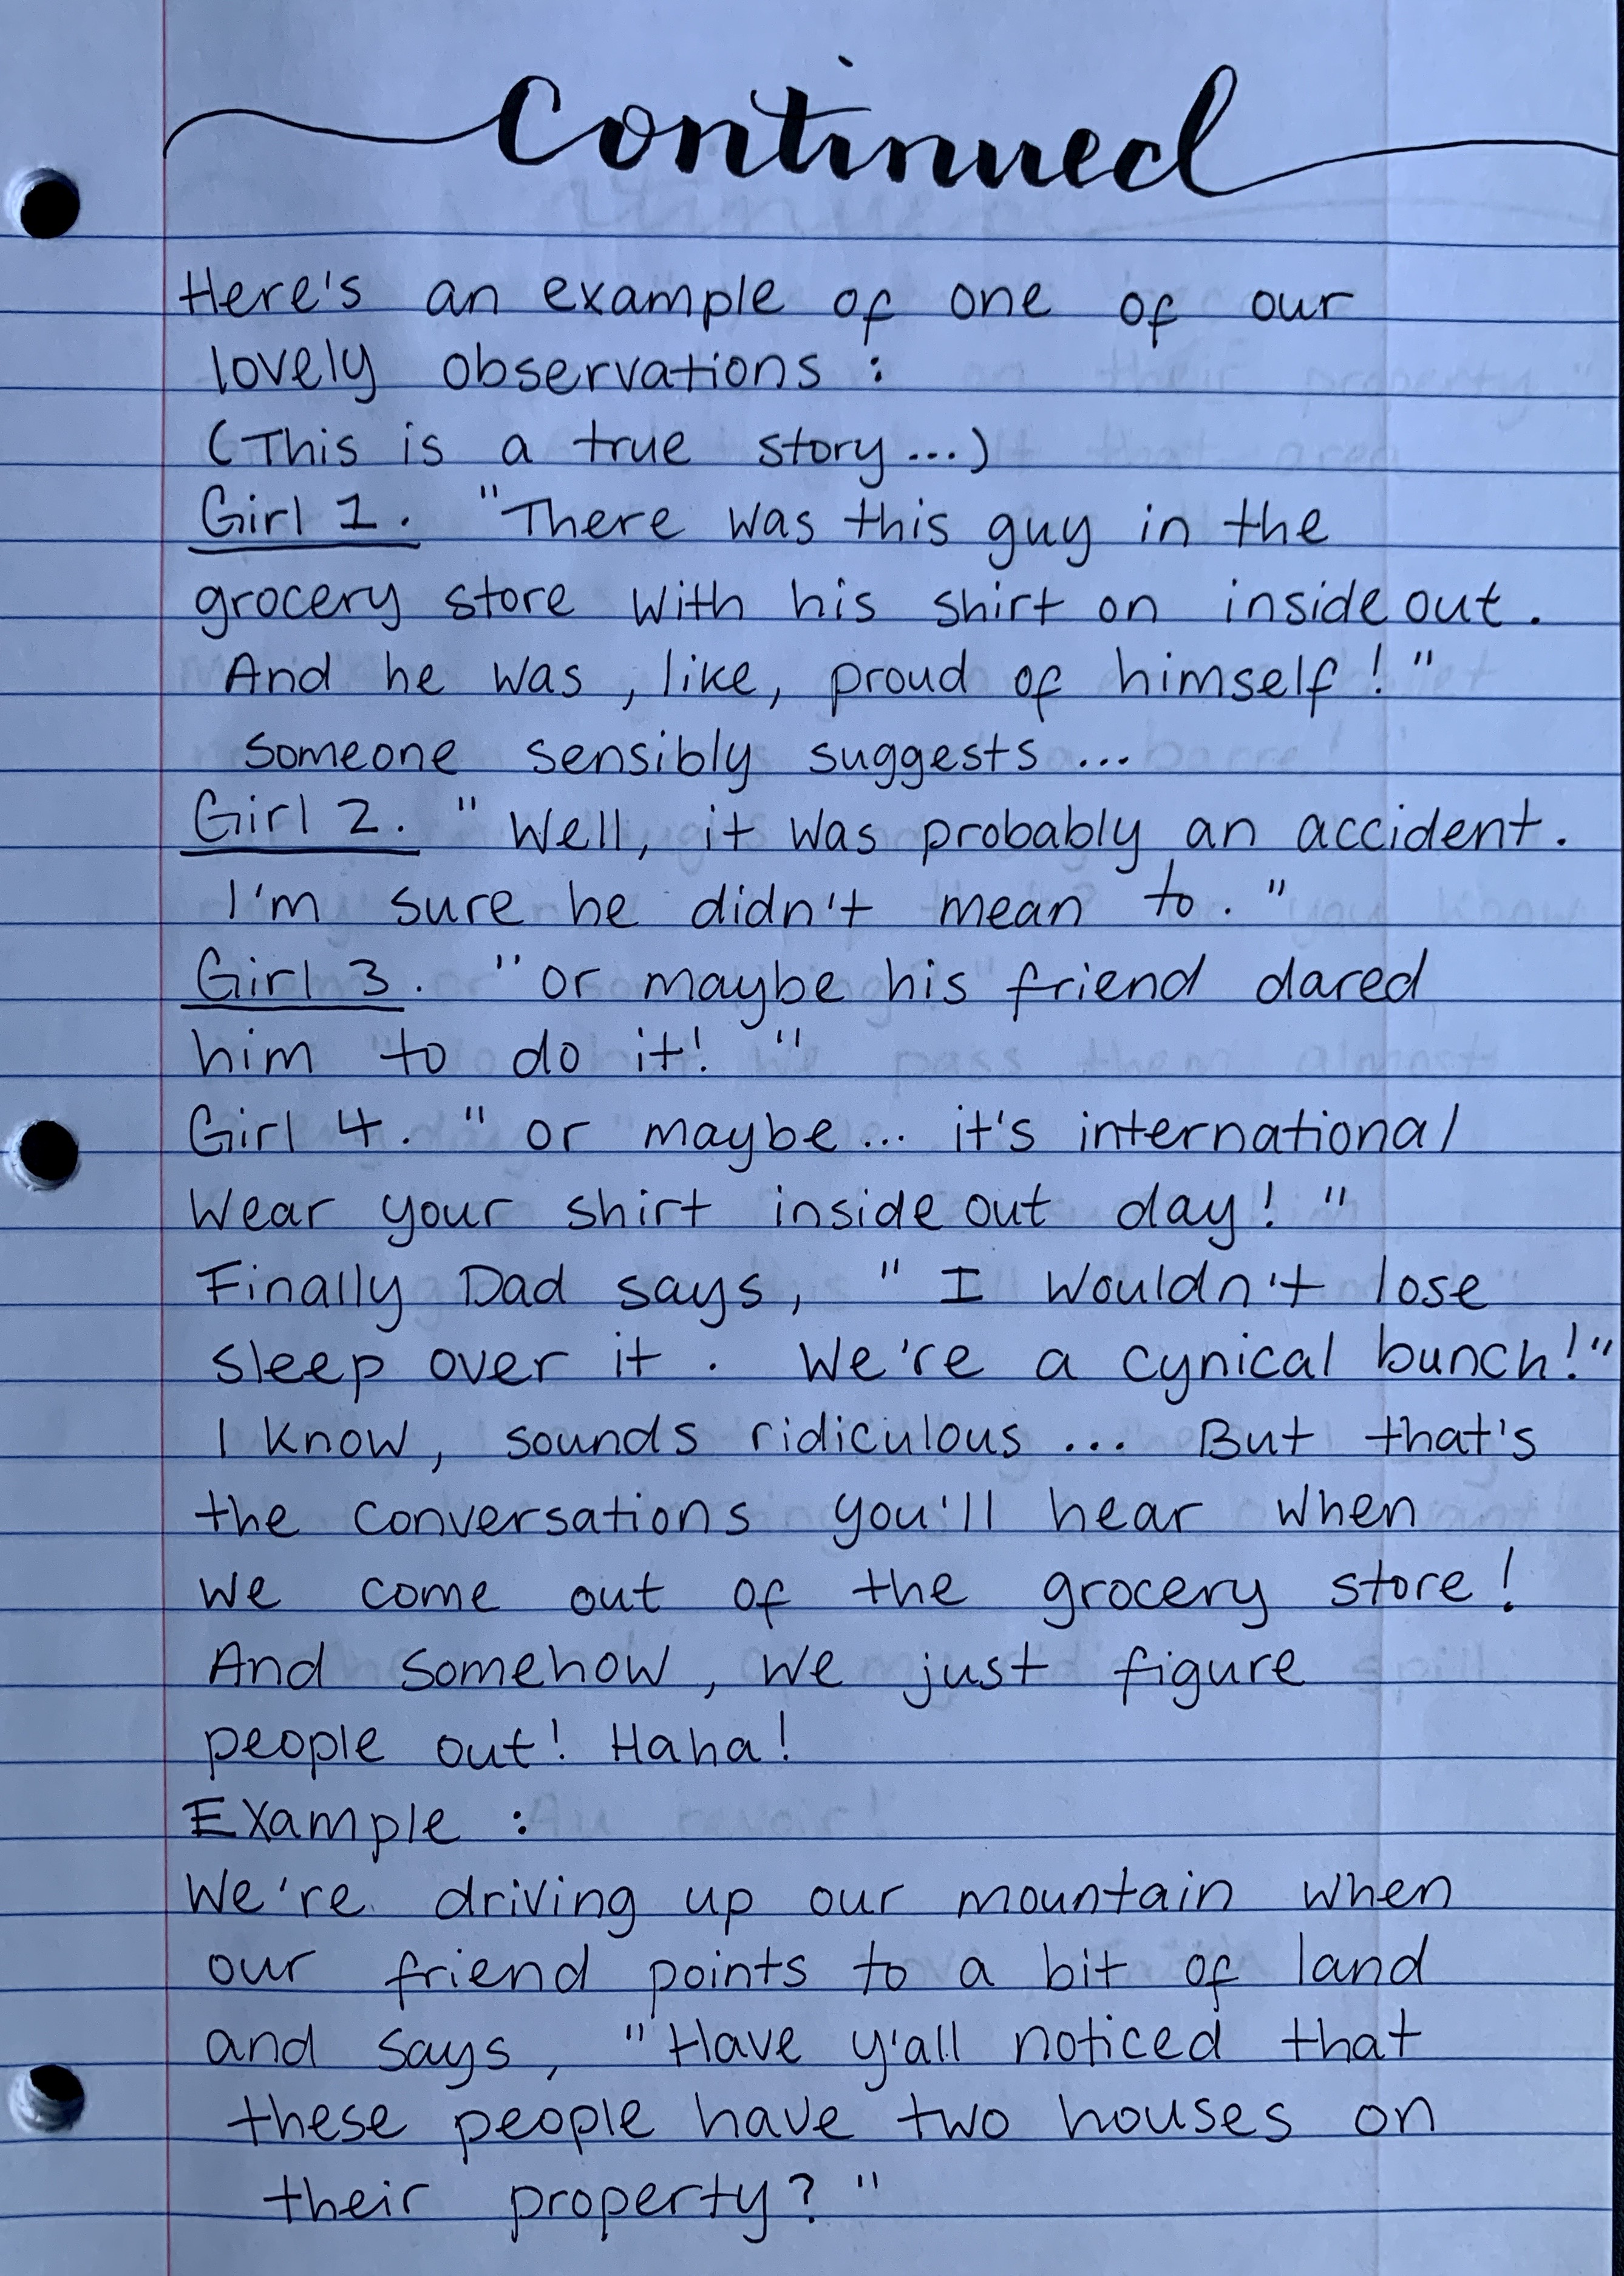 Continued
Here's an example of one of our
lovely observations :
(This is a true story...)
Girl 1. "There was this guy in the
grocery store with his shirt on inside out.
And he was, like, proud of himself!"
Someone sensibly suggests...
Girl 2. "Well, it was probably an accident.
I'm sure he didn't mean to."
Girl 3. "or maybe his friend dared
him to do it!"
Girl 4. "or maybe... it's international
wear your shirt inside out day!"
Finally Dad says, "I wouldn't lose
sleep over it. We're a cynical bunch!"
I know, sounds ridiculous... But that's
the conversations you'll hear when
we come out of the grocery store!
And somehow, we just figure
people out! Haha!
Example :
We're driving up our mountain when
our friend points to a bit of land
and says, "Have y'all noticed that
these people have two houses on
their property?"